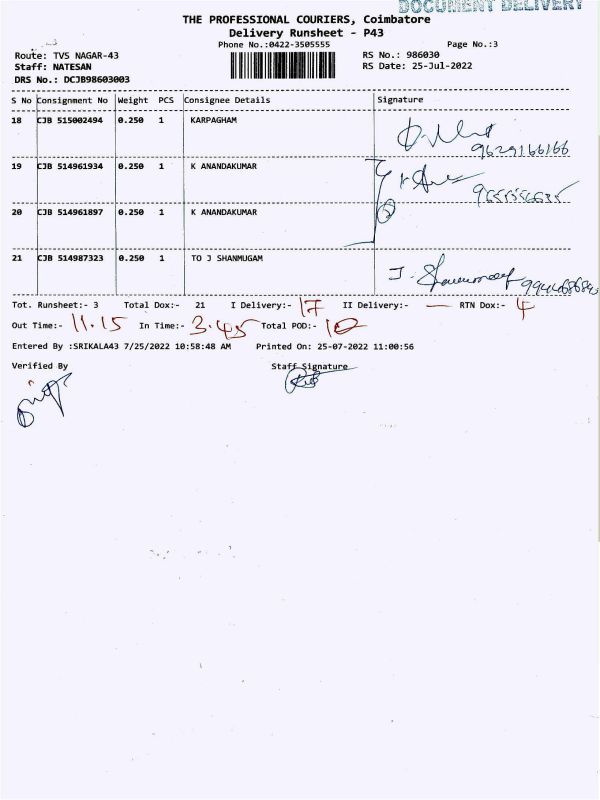 DOCUMENT DELIVERY
THE PROFESSIONAL COURIERS, Coimbatore
Delivery Runsheet - P43
Phone No.:0422-3505555 Page No.:3
Route: TVS NAGAR-43 RS No.: 986030
Staff: NATESAN RS Date: 25-Jul-2022
DRS No.: DCJB98603003
S No Consignment No Weight PCS Consignee Details Signature
18 CJB 515002494 0.250 1 KARPAGHAM
9629166166
19 CJB 514961934 0.250 1 K ANANDAKUMAR
20 CJB 514961897 0.250 1 K ANANDAKUMAR
21 CJB 514987323 0.250 1 TO J SHANMUGAM
Tot. Runsheet:- 3 Total Dox:- 21 I Delivery:- 17 II Delivery:- — RTN Dox:- 4
Out Time:- 11.15 In Time:- 3.45 Total POD:- 10
Entered By :SRIKALA43 7/25/2022 10:58:48 AM Printed On: 25-07-2022 11:00:56
Verified By Staff Signature